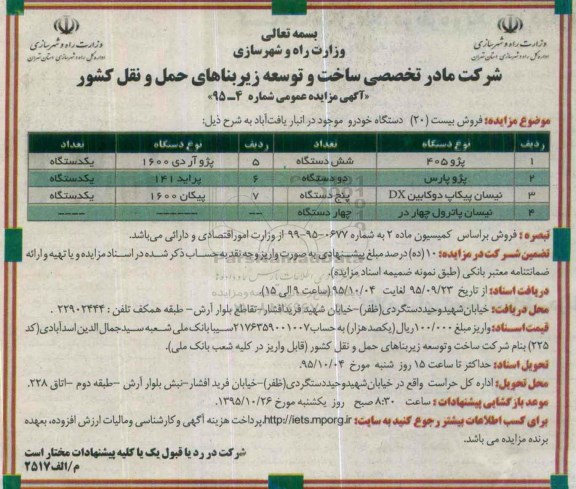 بسمه تعالی
وزارت راه و شهرسازی
وزارت راه و شهرسازی
اداره کل راه و شهرسازی استان تهران
وزارت راه و شهرسازی
اداره کل راه و شهرسازی استان تهران
شرکت مادر تخصصی ساخت و توسعه زیربناهای حمل و نقل کشور
«آگهی مزایده عمومی شماره ۴-۹۵»
موضوع مزایده: فروش بیست (۲۰) دستگاه خودرو موجود در انبار یافت‌آباد به شرح ذیل:
ردیف نوع دستگاه تعداد ردیف نوع دستگاه تعداد
۱ پژو ۴۰۵ شش دستگاه ۵ پژو آر دی ۱۶۰۰ یکدستگاه
۲ پژو پارس دو دستگاه ۶ پراید ۱۴۱ یکدستگاه
۳ نیسان پیکاپ دوکابین DX پنج دستگاه ۷ پیکان ۱۶۰۰ یکدستگاه
۴ نیسان پاترول چهار در چهار دستگاه -- ------ -----
تبصره: فروش براساس کمیسیون ماده ۲ به شماره ۰۶۷۷-۹۵-۹۹ از وزارت امور اقتصادی و دارائی می‌باشد.
تضمین شرکت در مزایده: ۱۰ (ده) درصد مبلغ پیشنهادی به صورت واریز وجه نقد به حساب ذکر شده در اسناد مزایده و یا تهیه و ارائه
ضمانتنامه معتبر بانکی (طبق نمونه ضمیمه اسناد مزایده).
دریافت اسناد: از تاریخ ۹۵/۰۹/۲۳ لغایت ۹۵/۱۰/۰۴ (ساعت ۹ الی ۱۵).
محل دریافت: خیابان شهید وحید دستگردی (ظفر)- خیابان شهید فرید افشار- تقاطع بلوار آرش - طبقه همکف تلفن: ۲۲۹۰۲۴۴۴.
قیمت اسناد: واریز مبلغ ۱۰۰/۰۰۰ ریال (یکصد هزار) به حساب ۲۱۷۶۳۵۹۰۰۱۰۰۷ سیبا بانک ملی شعبه سید جمال الدین اسدآبادی (کد
۲۲۵) بنام شرکت ساخت و توسعه زیربناهای حمل و نقل کشور (قابل واریز در کلیه شعب بانک ملی).
تحویل اسناد: حداکثر تا ساعت ۱۵ روز شنبه مورخ ۹۵/۱۰/۰۴.
محل تحویل: اداره کل حراست واقع در خیابان شهید وحید دستگردی (ظفر)- خیابان فرید افشار- نبش بلوار آرش - طبقه دوم - اتاق ۲۲۸.
موعد بازگشایی پیشنهادات: ساعت ۸:۳۰ صبح روز یکشنبه مورخ ۱۳۹۵/۱۰/۲۶.
برای کسب اطلاعات بیشتر رجوع کنید به سایت: http://iets.mporg.ir، پرداخت هزینه آگهی و کارشناسی و مالیات ارزش افزوده، بعهده
برنده مزایده می باشد.
شرکت در رد یا قبول یک یا کلیه پیشنهادات مختار است
م/الف ۲۵۱۷